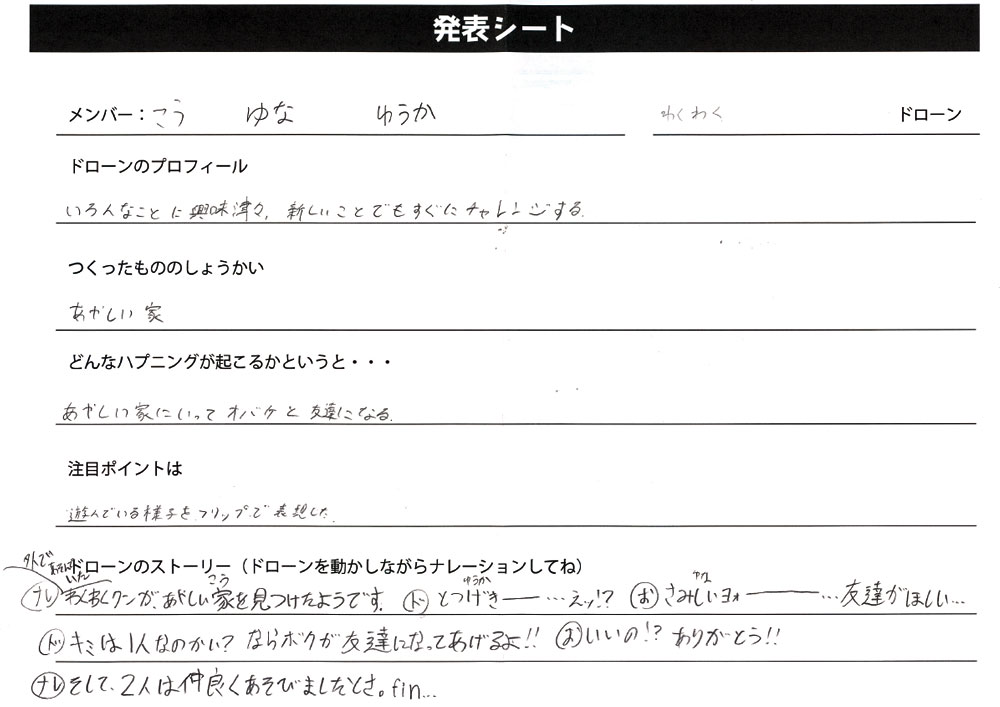 発表シート
メンバー：こう ゆな ゆうか わくわく ドローン
ドローンのプロフィール
いろんなことに興味津々，新しいことでもすぐにチャレンジする．
つくったもののしょうかい
あやしい 家
どんなハプニングが起こるかというと・・・
あやしい家にいって オバケと 友達になる．
注目ポイントは
遊んでいる様子をフリップで表想した．
外で
あそんで
いた
ドローンのストーリー（ドローンを動かしながらナレーションしてね）
こう ゆうか ゆな
ナレ わくわくクンが、あやしい家を見つけたようです。 ド とつげきー――…えッ!? お さみしいヨォ――――…友達がほしい…
ド キミは1人なのかい? ならボクが友達になってあげるよ!! お いいの!? ありがとう!!
ナレ そして、2人は仲良くあそびましたとさ。fin…